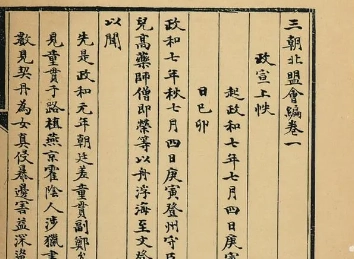 三朝北盟會編卷一
政宣上帙
起政和七年七月四日庚寅
日已卯
政和七年秋七月四日庚寅登州守臣
兒高藥師僧即榮等以舟浮海至文登
以聞
先是政和元年朝廷差童貫副鄭允
見童貫于路植燕京霍陰人涉獵書
數見契丹為女真侵暴邊害益深盜